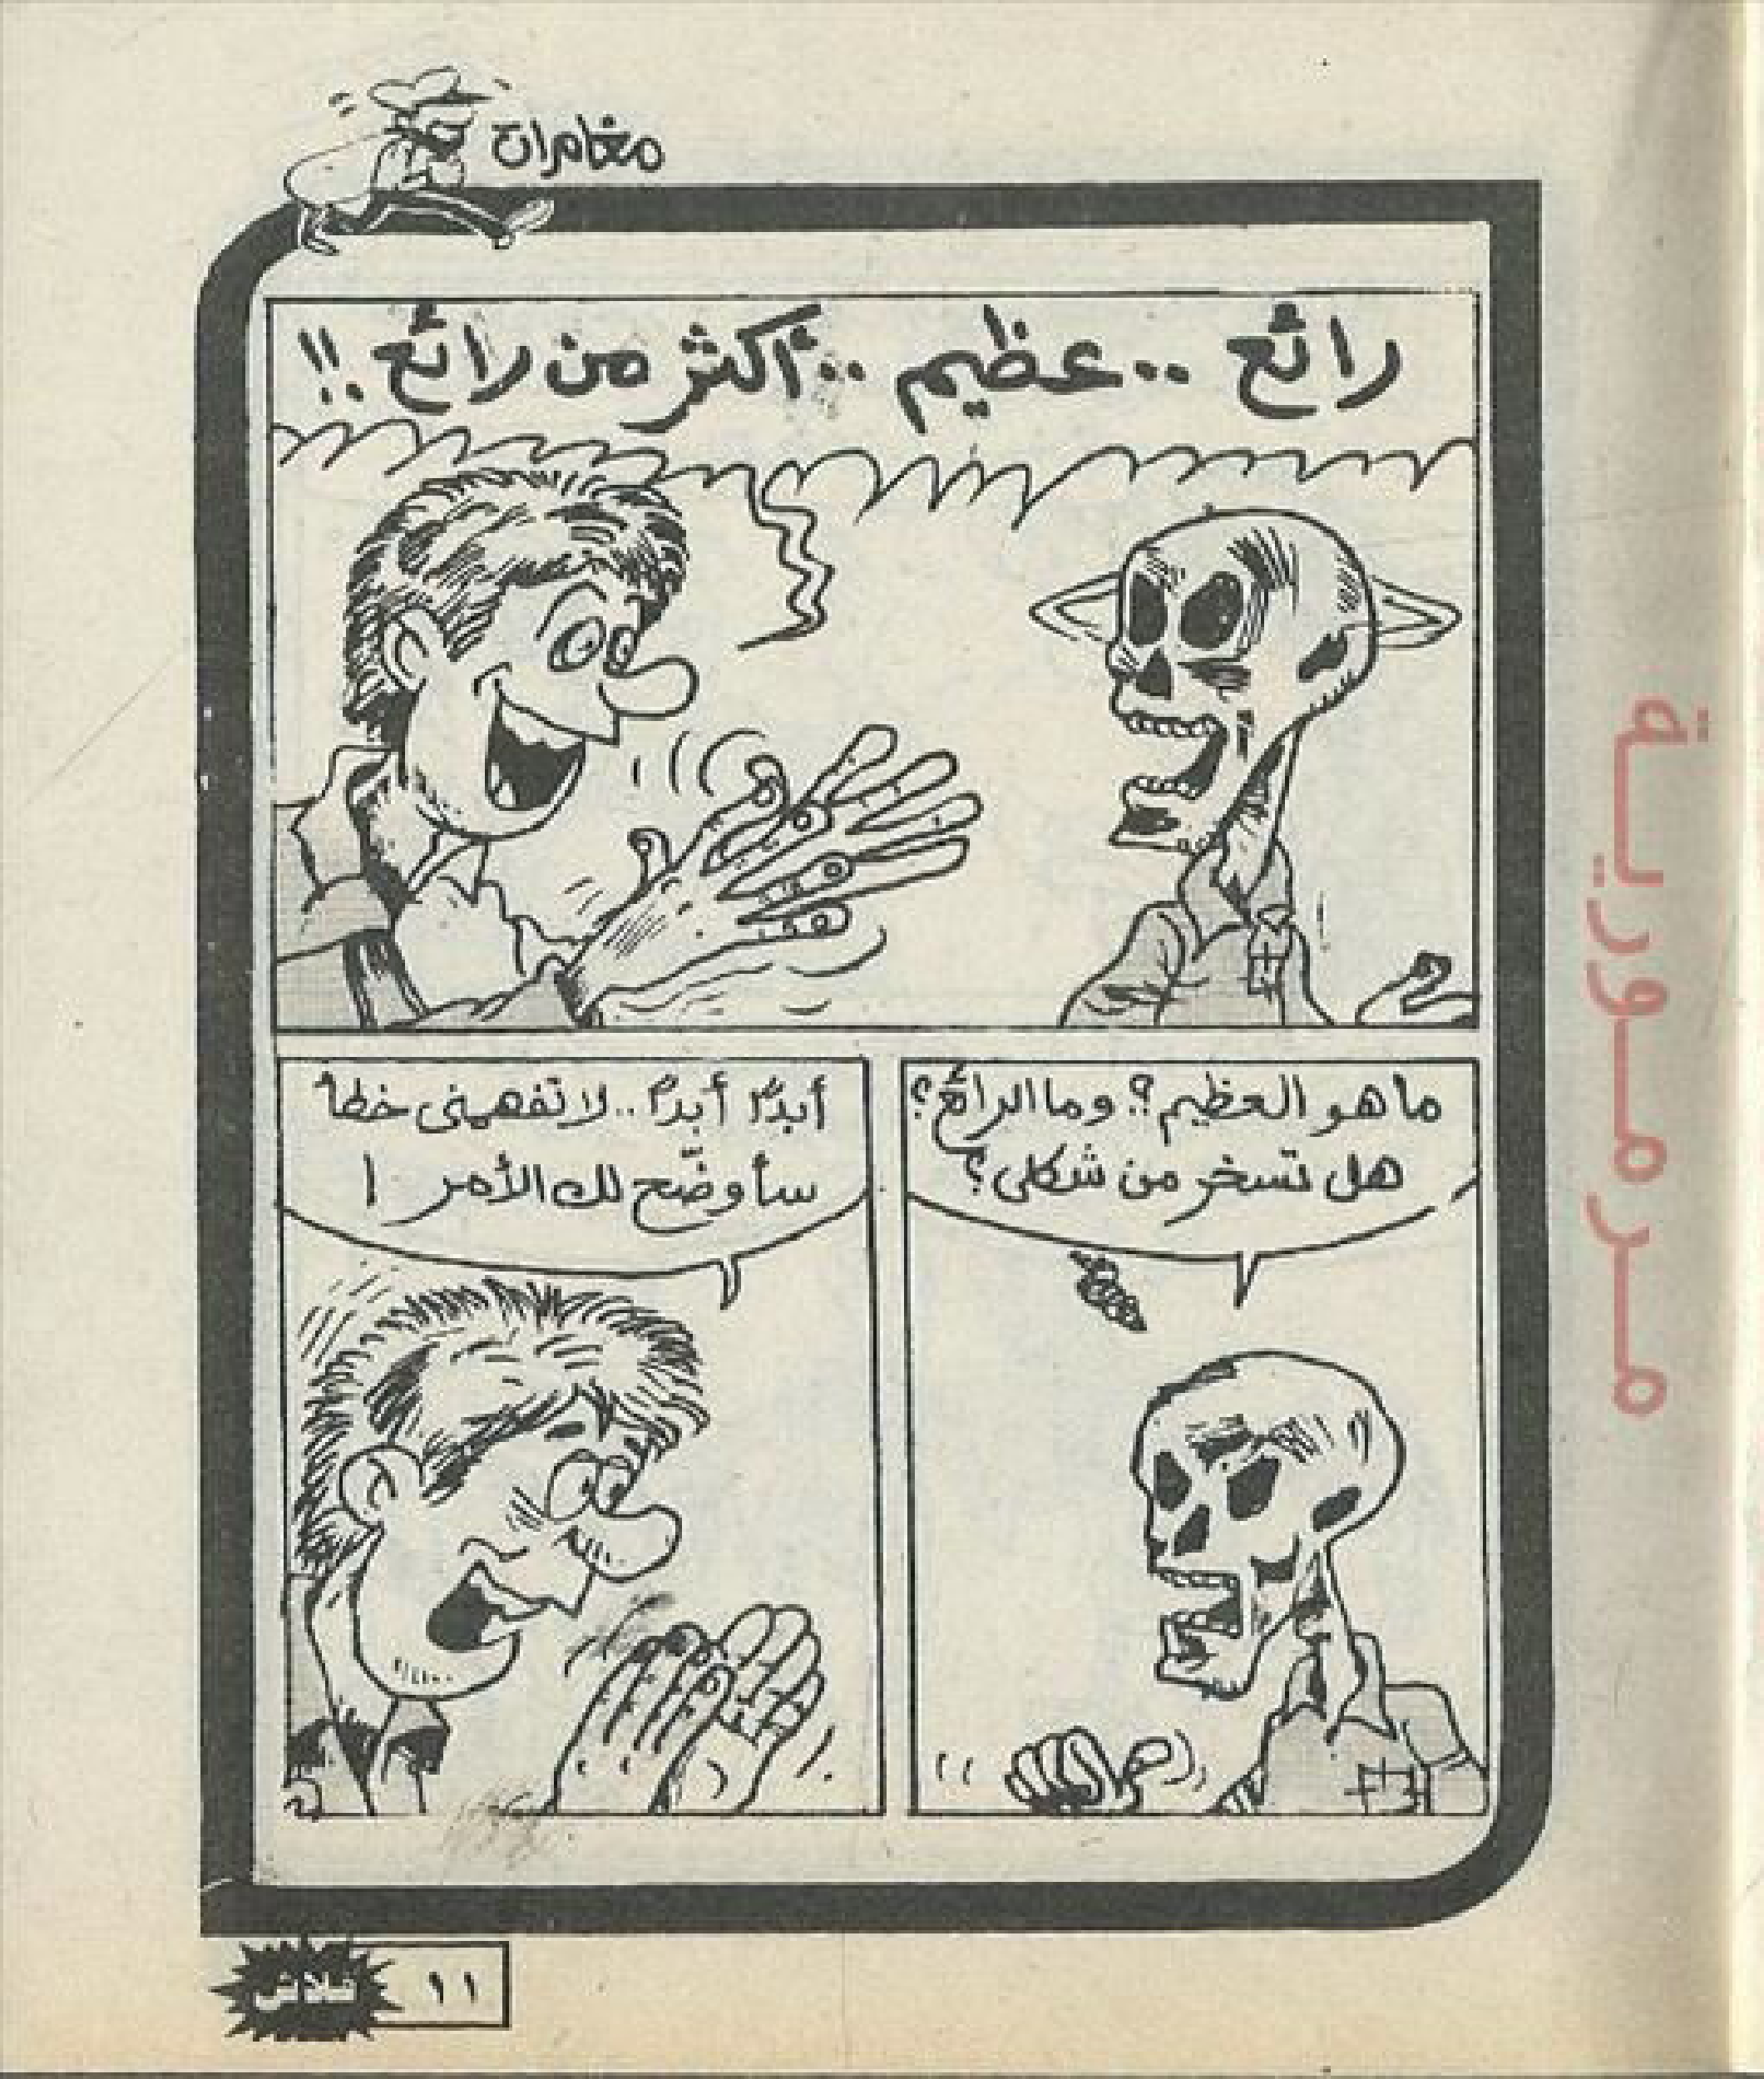 مغامرات
رائع .. عظيم .. أكثر من رائع .!!
ما هو العظيم ؟. وما الرائع ؟
هل تسخر من شكلى ؟
أبدًا أبدًا .. لا تفهمنى خطأ
سأوضّح لك الأمر !
مرمورية
١١
فلاش